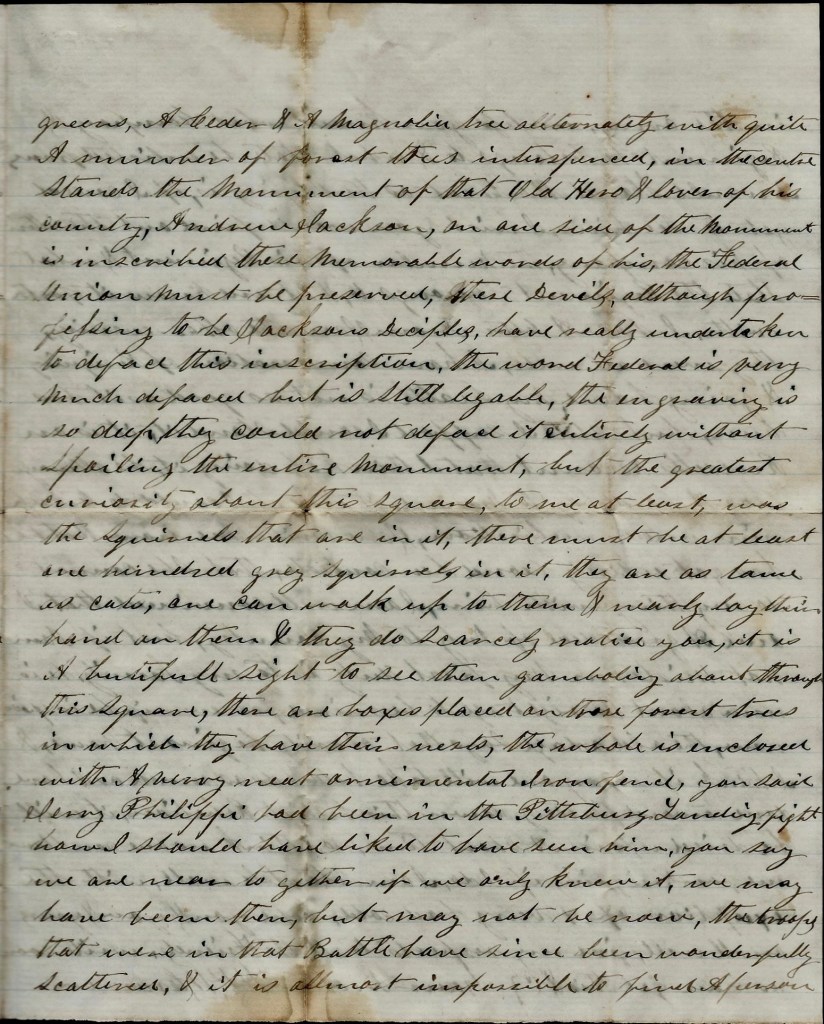 greens, A Ceder & A Magnolia tree alternately with quite
A number of forest trees interspenced, in the centre
Stands the Monument of that Old Hero & lover of his
country, Andrew Jackson, on one side of the Monument
is inscribed these Memorable words of his, the Federal
Union Must be preserved, these Devils, allthough pro=
fessing to be Jacksons Deciples, have really undertaken
to deface this inscription, the word Federal is verry
Much defaced but is Still legable, the engraving is
so deep they could not deface it entirely without
Spoiling the entire Monument, but the greatest
curiosity about this square, to me at least, was
the Squirrels that are in it, there must be at least
one hundred grey Squirrels in it, they are as tame
as cats, one can walk up to them & nearly lay thier
hand on them & they do scarcely notice you, it is
A butifull sight to see them gamboling about through
this Square, there are boxes placed on those forest trees
in which they have their nests, the whole is enclosed
with A verry neat ornimental Iron fence, you said
Jerry Philippi had been in the Pittsburg Landing fight
how I should have liked to have seen him, you say
we are near to gether if we only knew it, we may
have been then, but may not be now, the troops
that were in that Battle have since been wonderfully
Scattered, & it is allmost impossible to find A person